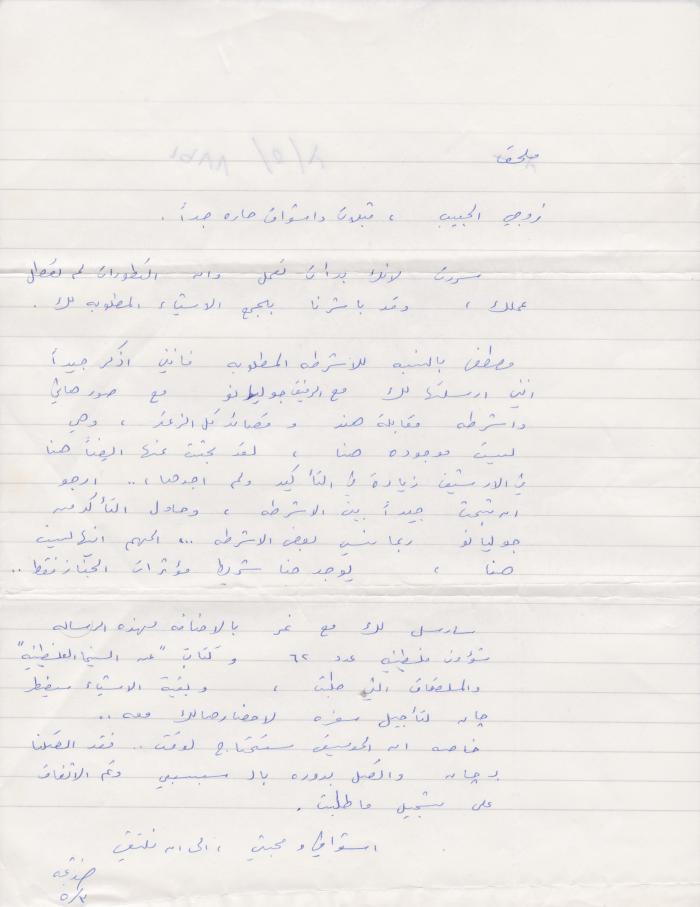 ملحق
زوجي الحبيب ، قبلات واشواق حاره جداً .
سررت لانك بدأت تعمل وان التطورات لم تعطل
عملك ، وقد باشرنا بجمع الاشياء المطلوبه لك .
مصطفى بالنسبه للاشرطه المطلوبه فانني اذكر جيداً
انني ارسلتها لك مع الرفيق جوليانو مع صور هاني
واشرطه مقابلة هند و تل الزعتر ، وهي
ليست موجوده هنا ، لقد بحثت عنها ايضاً هنا
في الارشيف زيادة في التأكيد ولم اجدها ،.. ارجو
ان تبحث جيداً بين الاشرطه ، وحاول التأكد من
جوليانو ربما نسي بعض الاشرطه ... المهم انها ليست
هنا ، يوجد هنا شريط مؤثرات فقط ..
سارسل لك مع بالاضافه لهذه الرساله
شؤون فلسطينيه عدد ٦٢ و كتاب "عن السينما الفلسطينيه"
والملصقات التي طلبت ، وبقية الاشياء سيضطر
جان لتأجيل سفره لاحضارها لك معه ..
خاصه ان الموسيقى ستحتاج لوقت .. فقد اتصلنا
بـ جان واتصل بدوره بالـ وتم الاتفاق
على تسجيل ما طلبت .
اشواقي و محبتي ، الى ان نلتقي
خديجه
٥/٣